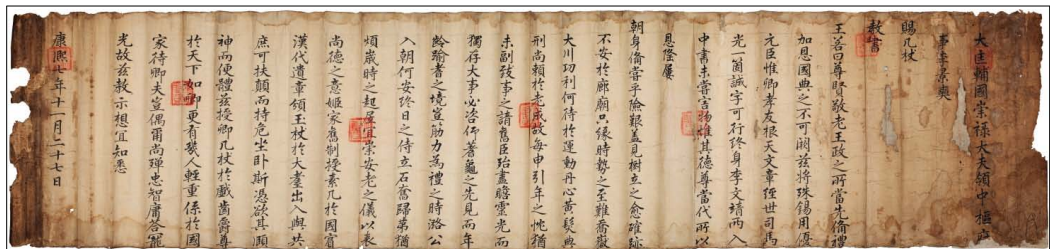 大匡輔國崇祿大夫領中樞府
事李景奭
賜几杖
敎書
王若曰尊賢敬老王政之所當先備禮
加恩國典之不可闕玆將殊錫用優
元臣惟卿孝友根天文章徑世司馬
光一箇誠字可行終身李文靖兩入
中書未嘗言物雄其德尊當代所以
恩隆屢
朝身備嘗乎險艱盖見樹立之愈確跡
不安於廊廟只緣時勢之至難喬嶽
大川功利何待於運動丹心黃髮典
刑尙賴於老成故每申引年之忱猶
未副致事之請舊臣殆盡瞻靈光而
獨存大事必咨仰蓍龜之先見而年
齡踰耆之境豈筋力爲禮之時潞公
入朝何安終日之侍立石奮歸第猶
煩歲時之起居宜崇安老之儀以表
尙德之意姬家舊制授素几於國賓
漢代遺章領玉杖於大耋出入與共
庶可扶顚而持危坐臥斯憑欲其頤
神而便體玆授卿几杖於戲齒爵尊
於天下如卿更有幾人輕重係於國
家待卿夫豈偶爾尙殫忠智庸答寵
光故玆敎示想宜知悉
康熙七年十一月二十七日